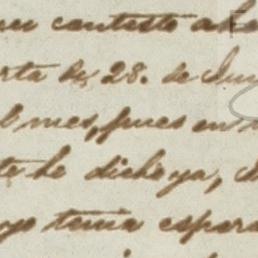 contesto
de 28. de
mes, pues en
te he dicho ya,
yo tenia espera